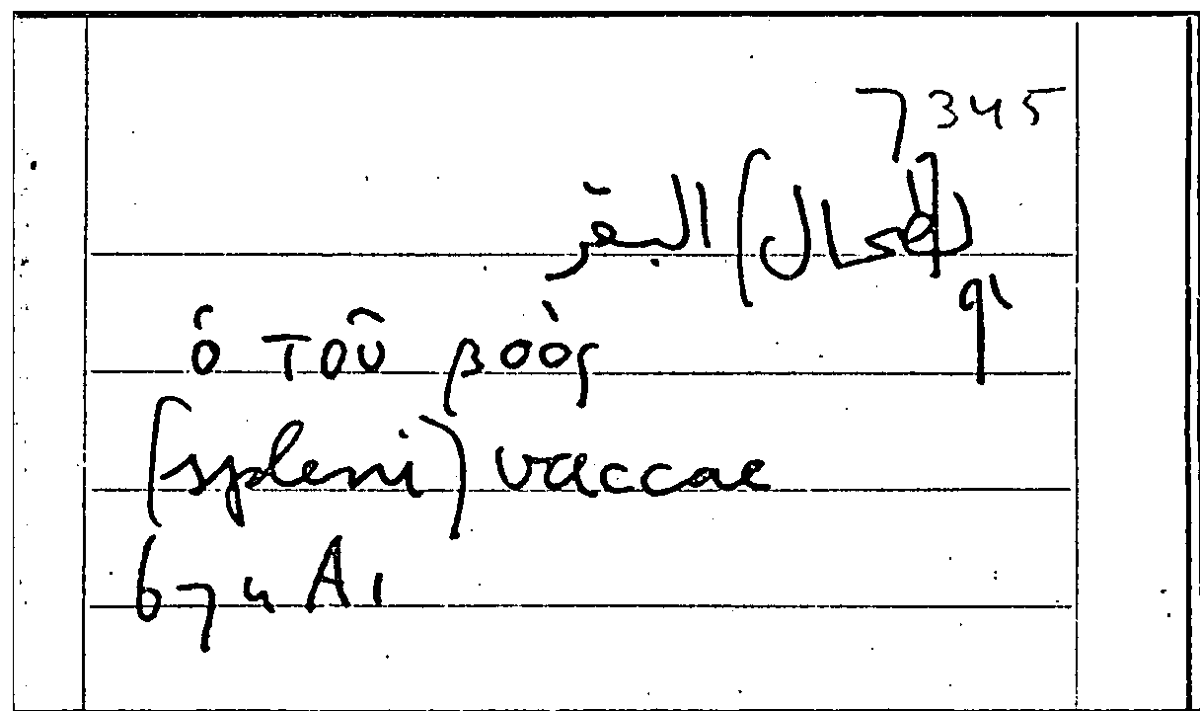 7345
(لطحال) البقر
91
ὁ τοῦ βοὸς
(spleni) vaccae
674 A1